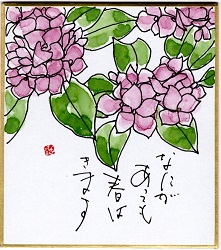 なにが
あっても
春は
きます